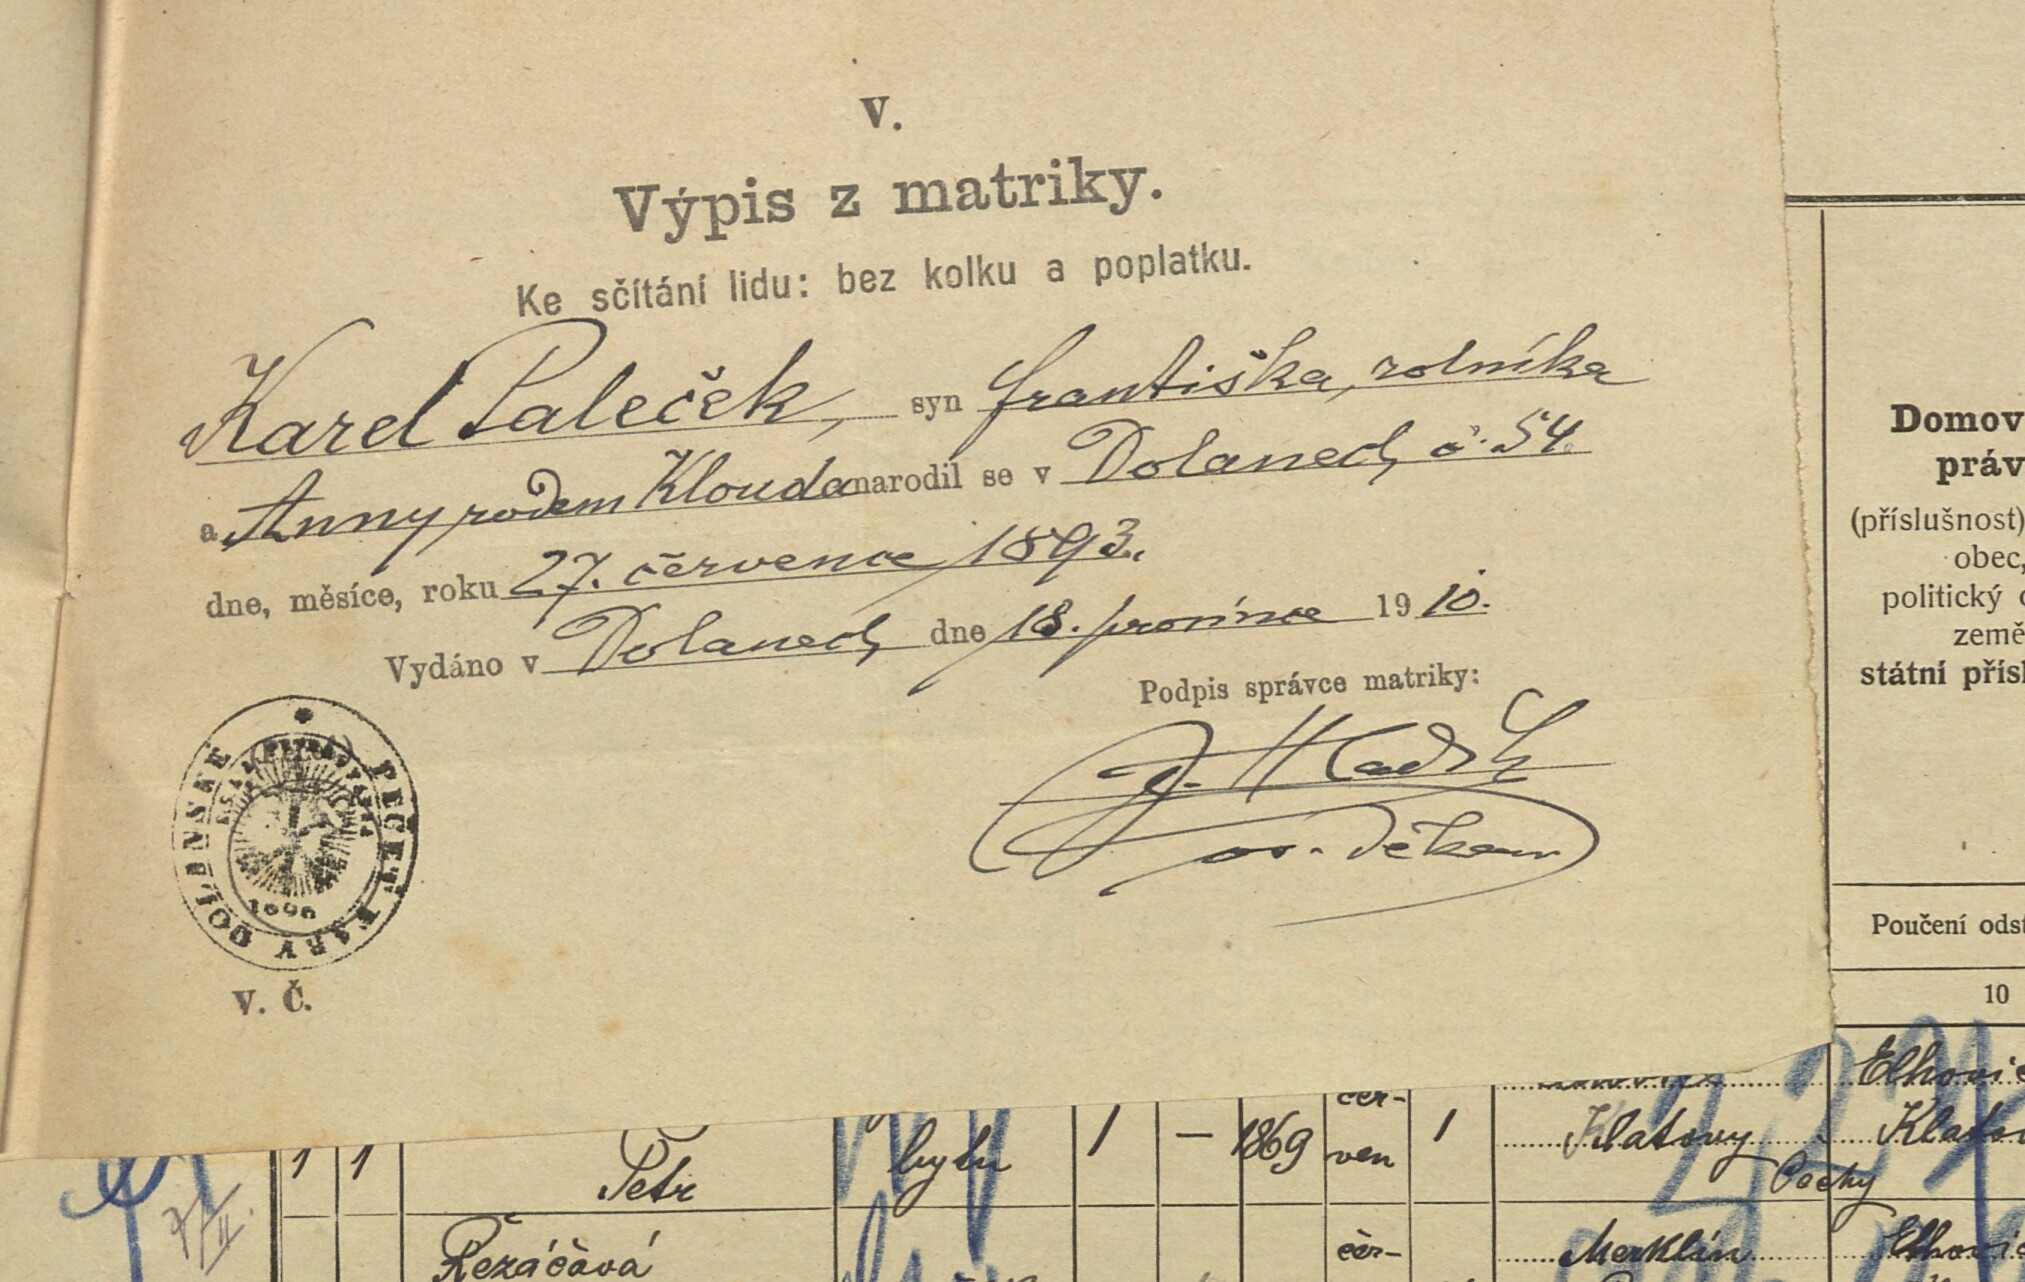 V.
Výpis z matriky.
Ke sčítání lidu: bez kolku a poplatku.
Karel Paleček, syn Františka, rolníka
a Anny rodem Klouda narodil se v Dolanech č. 54.
dne, měsíce, roku 27. července 1893.
Vydáno v Dolanech dne 18. prosince 1910.
Podpis správce matriky:
děkan
PEČEŤ FARY DOLANSKÉ
V. Č.
Domov
práv
(příslušnost)
obec,
politický o
země
státní přísl
Poučení odst
10
Elhovic
1 1 Petr bytu 1 — 1869 čer-
ven 1 Klatovy Klatov
Čechy
II.
Řezáčová čer- Merklín Elhovic